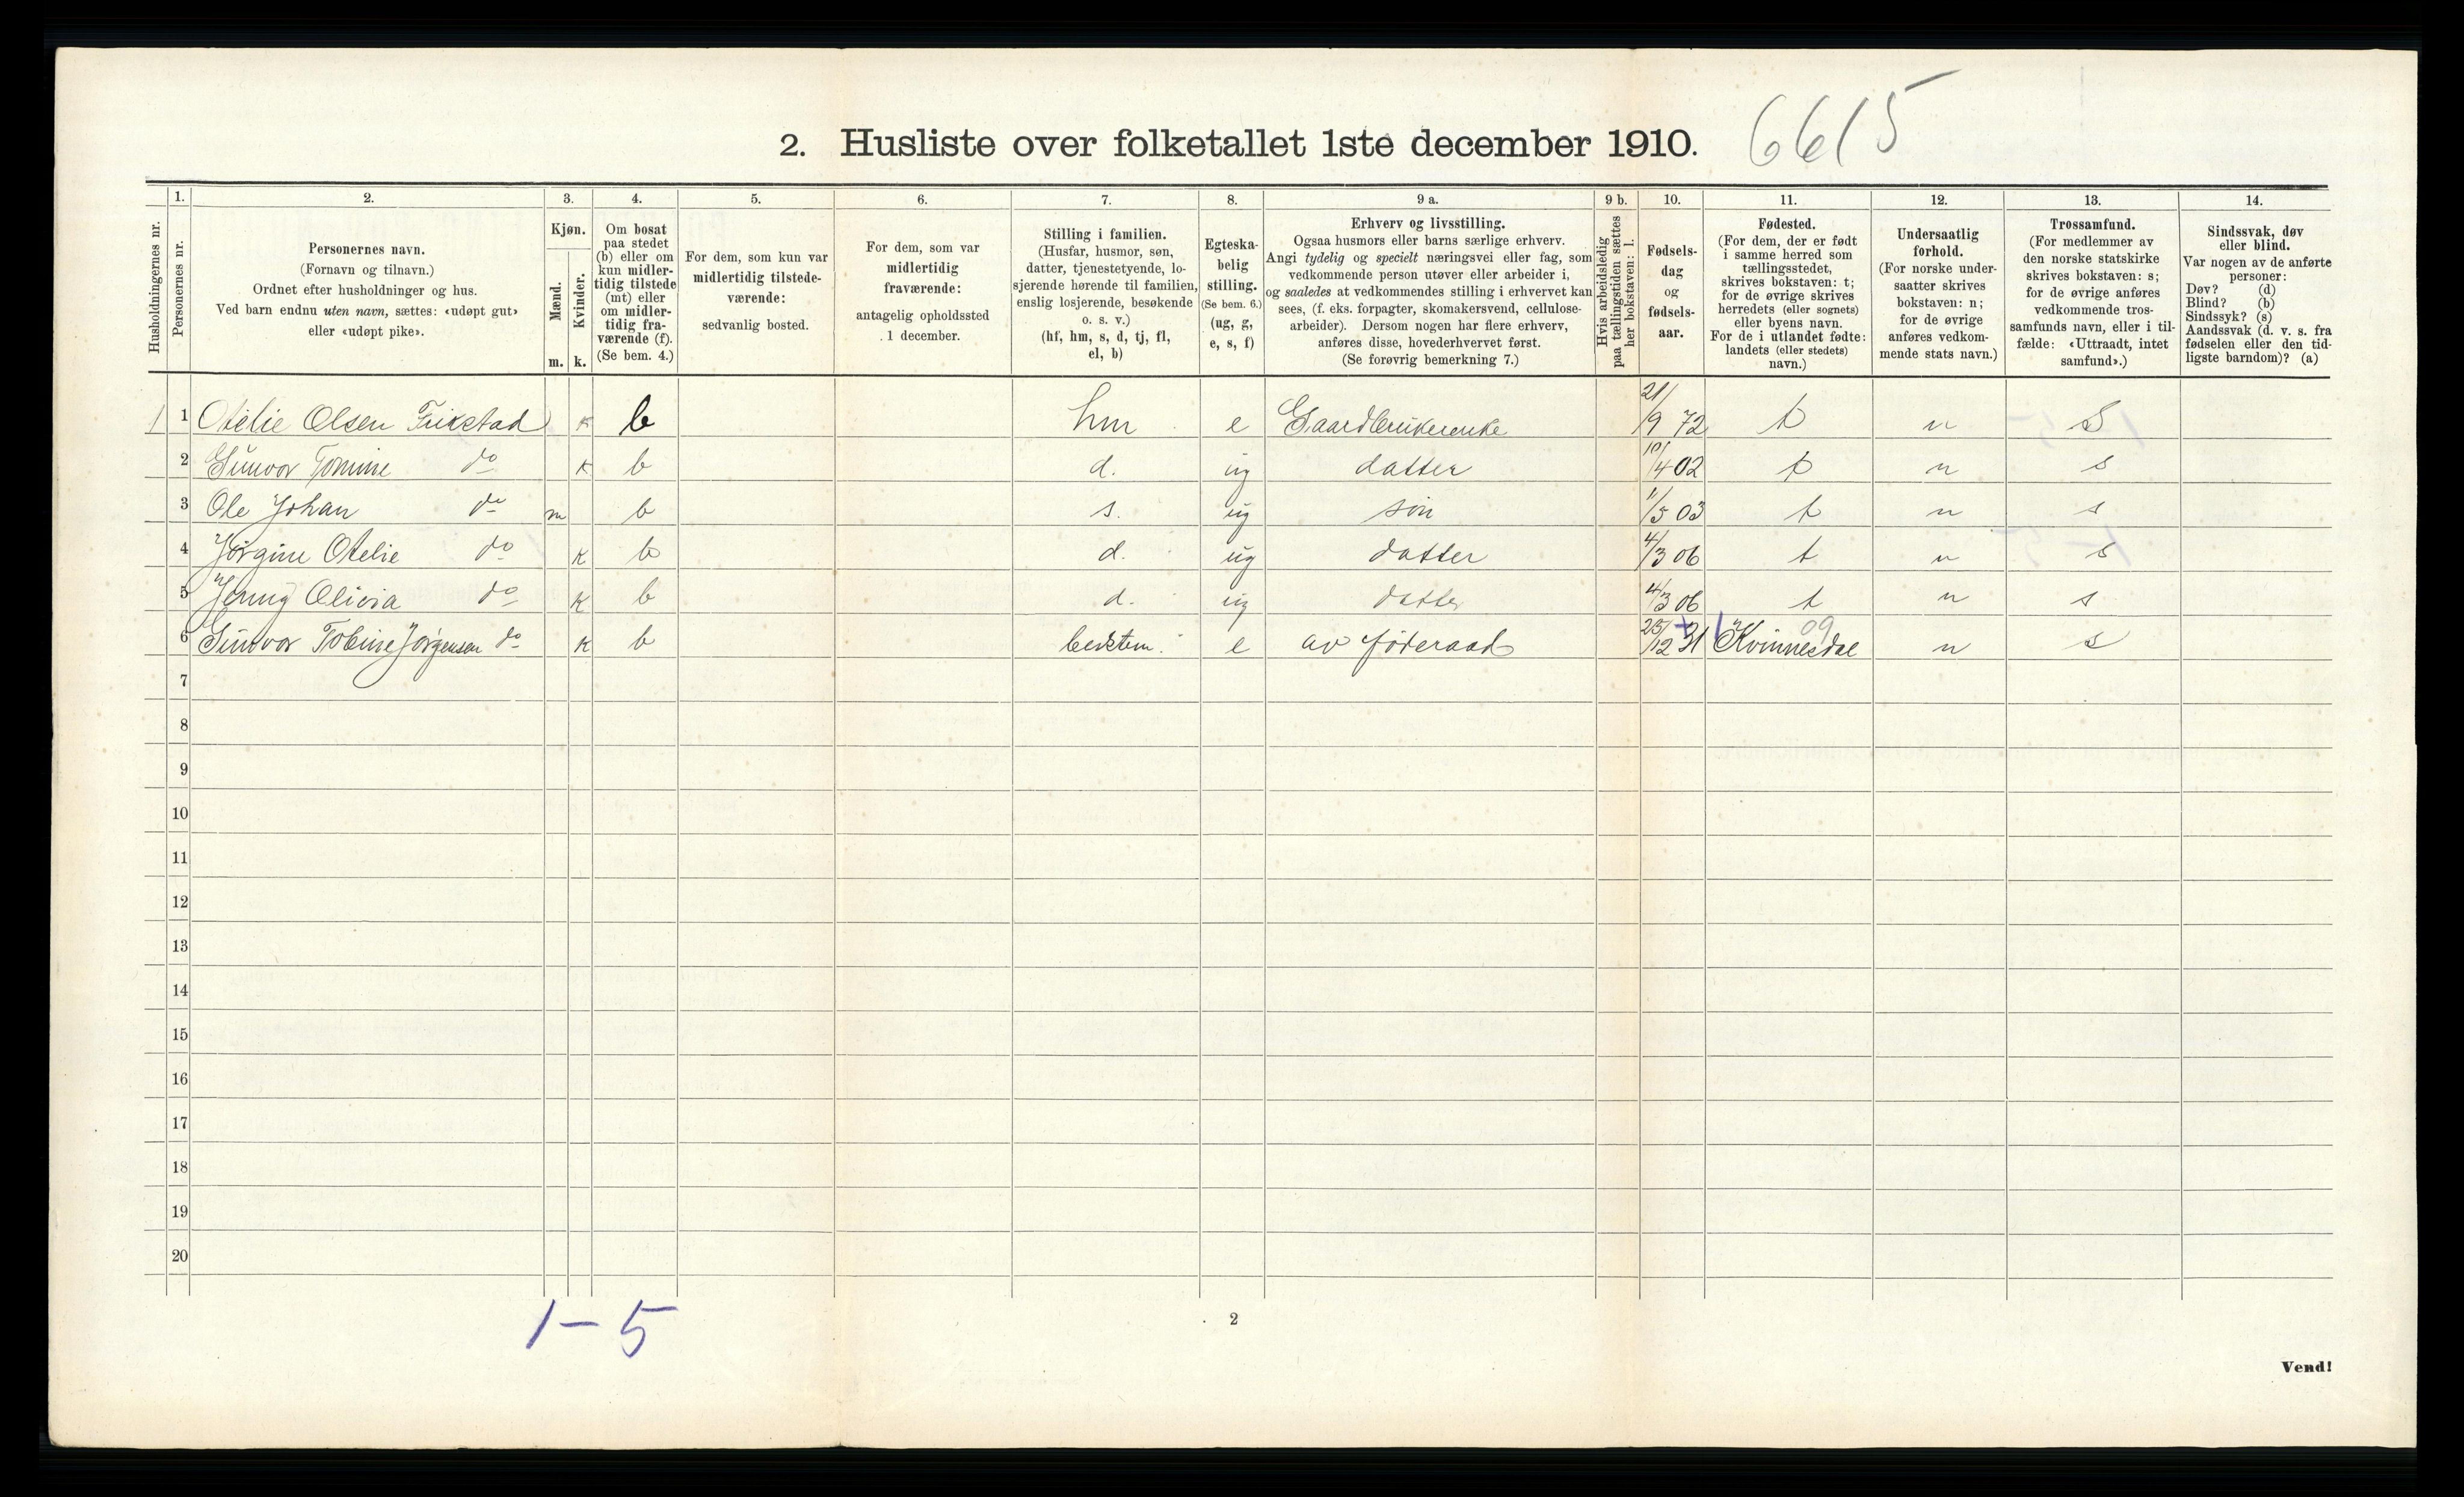 2. Husliste over folketallet 1ste december 1910. 6615
Husholdningernes nr.
1.
Personernes nr.
2.
Personernes navn.
(Fornavn og tilnavn.)
Ordnet efter husholdninger og hus.
Ved barn endnu uten navn, sættes: «udøpt gut»
eller «udøpt pike».
3.
Kjøn.
Mænd.
Kvinder.
m. k.
4.
Om bosat
paa stedet
(b) eller om
kun midler-
tidig tilstede
(mt) eller
om midler-
tidig fra-
værende (f).
(Se bem. 4.)
5.
For dem, som kun var
midlertidig tilstede-
værende:
sedvanlig bosted.
6.
For dem, som var
midlertidig
fraværende:
antagelig opholdssted
1 december.
7.
Stilling i familien.
(Husfar, husmor, søn,
datter, tjenestetyende, lo-
sjerende hørende til familien,
enslig losjerende, besøkende
o. s. v.)
(hf, hm, s, d, tj, fl,
el, b)
8.
Egteska-
belig
stilling.
(Se bem. 6.)
(ug, g,
e, s, f)
9 a.
Erhverv og livsstilling.
Ogsaa husmors eller barns særlige erhverv.
Angi tydelig og specielt næringsvei eller fag, som
vedkommende person utøver eller arbeider i,
og saaledes at vedkommendes stilling i erhvervet kan
sees, (f. eks. forpagter, skomakersvend, cellulose-
arbeider). Dersom nogen har flere erhverv,
anføres disse, hovederhvervet først.
(Se forøvrig bemerkning 7.)
9 b.
Hvis arbeidsledig
paa tællingstiden sættes
her bokstaven: l.
10.
Fødsels-
dag
og
fødsels-
aar.
11.
Fødested.
(For dem, der er født
i samme herred som
tællingsstedet,
skrives bokstaven: t;
for de øvrige skrives
herredets (eller sognets)
eller byens navn.
For de i utlandet fødte:
landets (eller stedets)
navn.)
12.
Undersaatlig
forhold.
(For norske under-
saatter skrives
bokstaven: n;
for de øvrige
anføres vedkom-
mende stats navn.)
13.
Trossamfund.
(For medlemmer av
den norske statskirke
skrives bokstaven: s;
for de øvrige anføres
vedkommende tros-
samfunds navn, eller i til-
fælde: «Uttraadt, intet
samfund».)
14.
Sindssvak, døv
eller blind.
Var nogen av de anførte
personer:
Døv? (d)
Blind? (b)
Sindssyk? (s)
Aandssvak (d. v. s. fra
fødselen eller den tid-
ligste barndom)? (a)
1 1 Otelie Olsen Fikstad k b hm e Gaardbrukerenke 21/9 72 t n S
2 Gunvor Tomine do k b d. ug datter 10/4 02 t n s
3 Ole Johan do m b s. ug søn 1/5 03 t n s
4 Jørgine Otelie do k b d. ug datter 4/3 06 t n s
5 Jenny Olivia do k b d. ug datter 4/3 06 t n s
6 Gunvor Tobine Jørgensen do k b bedstem. e av føderaad 25/12 31 Kvinnesdal 09 n s
7
8
9
10
11
12
13
14
15
16
17
18
19
20
1-5
2
Vend!